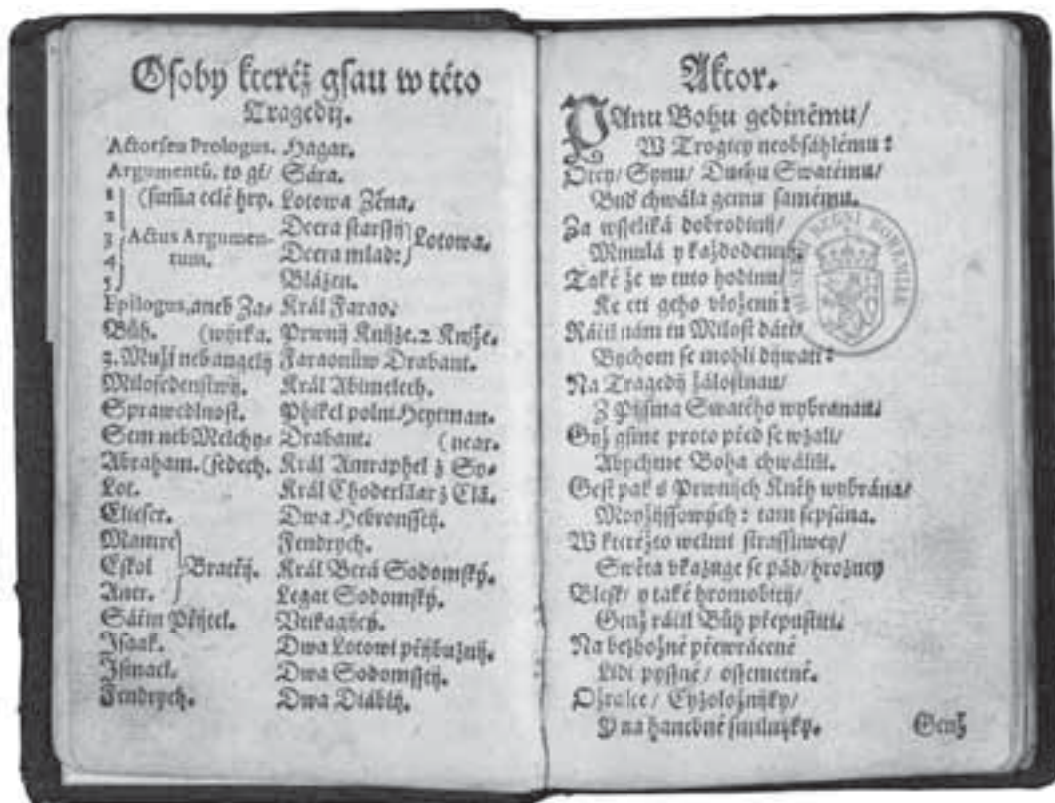 Osoby kteréž gsau w této
Tragedij.
Actor seu Prologus.
Argumentũ. to gſ/
1 (sum̃a celé hry.
2
3 Actus Argumen-
4 tum.
5
Epilogus, aneb Za-
Bůh. (wýrka.
3. Muži neb angelij
Miloſrdenſtwij.
Sprawedlnoſt.
Sem neb Melchy-
Abraham. (ſedech.
Lot.
Elieſer.
Mamre
Eſkol Bratřij.
Aner.
Sářin Přijtel.
Iſaak.
Iſmael.
Fendrych.
Hagar.
Sára.
Lotowa Žěna.
Dcera ſtarſſij
Dcera mlad: Lotowa.
Blázen.
Král Farao.
Prwnij Knijže. 2 Knijže.
Faraonůw Drabant.
Král Abimelech.
Phikel polnı Heytman.
Drabant. (near.
Král Amraphel z So-
Král Choderlaar z Elā.
Dwa Hebronſſtij.
Fendrych.
Král Bera Sodomſký.
Legat Sodomſký.
Vtikagijcý.
Dwa Lotowi přijbuznij.
Dwa Sodomſſtij.
Dwa Diáblij.
Aktor.
PAnu Bohu gedinému/
W Trogicy neobſáhlému:
Otcy/ Synu/ Duchu Swatému/
Buď chwála gemu ſamému.
Za wſſeliká dobrodinij/
Minulá y každodennij.
Také že w tuto hodinu/
Ke cti geho vloženu:
Ráčil nám tu Miloſt dáti/
Bychom ſe mohli dijwati:
Na Tragedij žáloſtnau/
Z Pijſma Swatého wybranau.
Gijž gſme proto před ſe wzali/
Abychme Boha chwálili.
Geſt pak z Prwnijch Kněh wybrána/
Moyžijſſowých: tam ſepſána.
W kteréžto welmi ſtraſſliwey/
Swěta vkazuge ſe pád/ hrozney
Bleſk/ y také hromobitij/
Genž ráčil Bůh přepuſtiti.
Na bezbožné převrácené
Lidi pyſſné/ oſſemetné.
Ožralce/ Cyzoložnijky/
Y na hanebné ſmilnijky.
Genž
MUSEUM REGNI BOHEMIAE